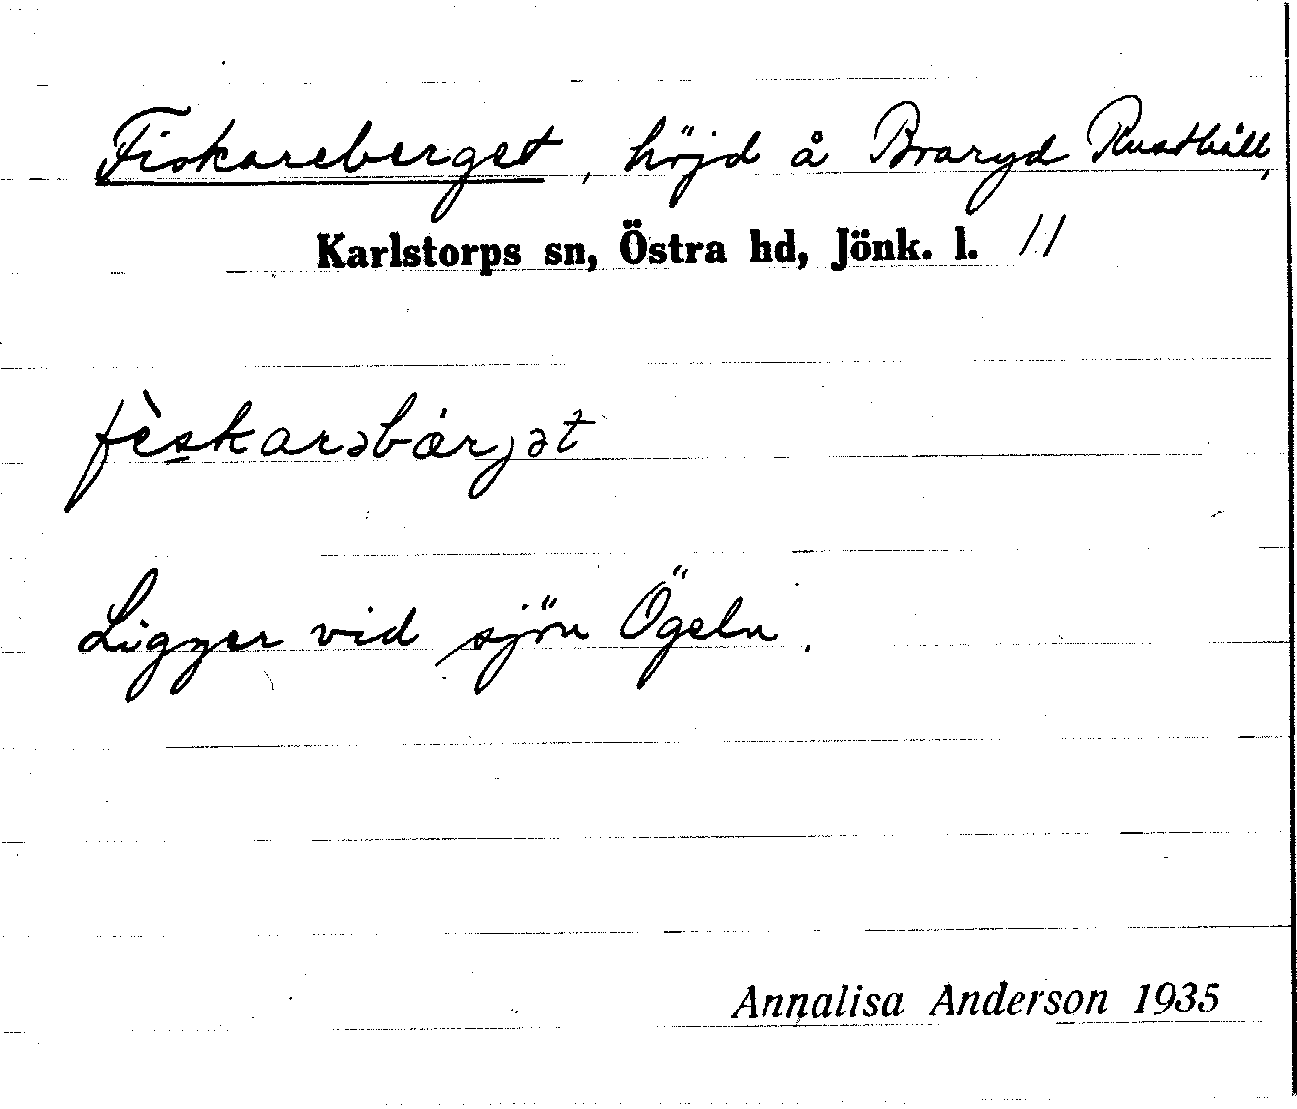 Fiskareberget, höjd å Braryd Rusthåll,
Karlstorps sn, Östra hd, Jönk. l. 11
fèskarəbärjət
Ligger vid sjön Ögeln.
Annalisa Anderson 1935